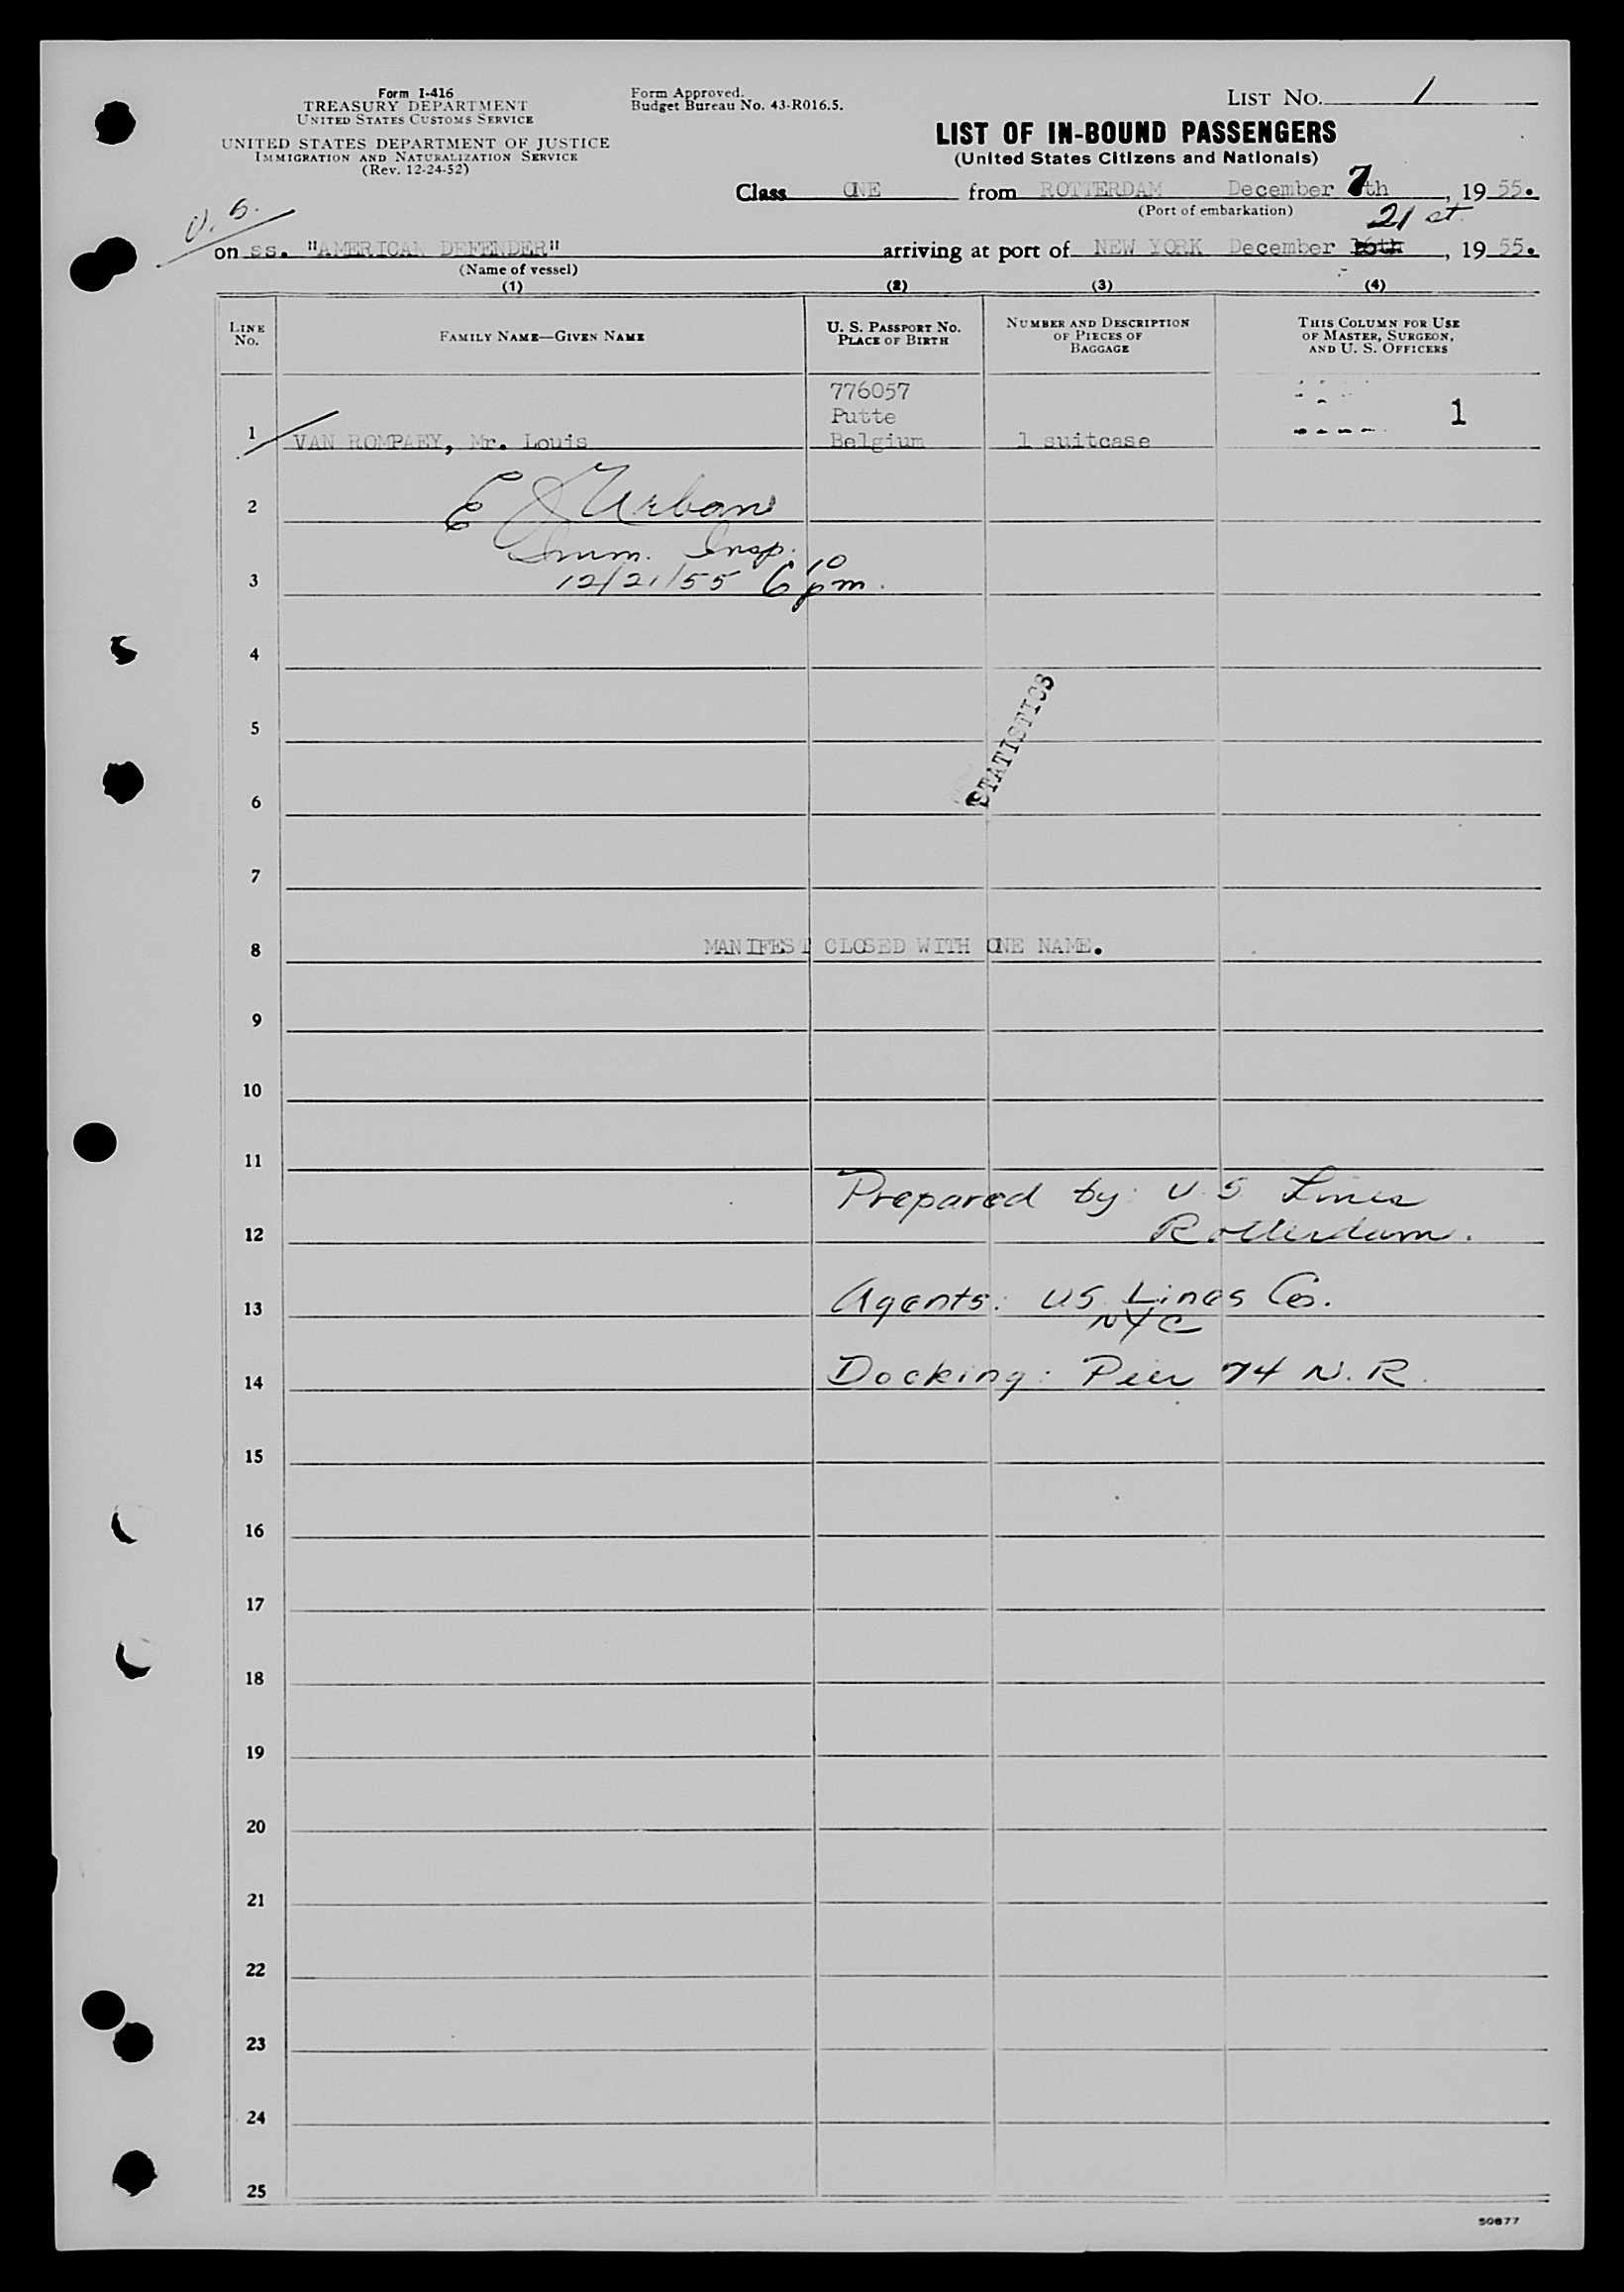 Form I-416
TREASURY DEPARTMENT
UNITED STATES CUSTOMS SERVICE
UNITED STATES DEPARTMENT OF JUSTICE
IMMIGRATION AND NATURALIZATION SERVICE
(Rev. 12-24-52)
Form Approved.
Budget Bureau No. 43-R016.5.
LIST No. 1
LIST OF IN-BOUND PASSENGERS
(United States Citizens and Nationals)
Class ONE from ROTTERDAM December 7th, 1955.
(Port of embarkation)
21 st.
U.S.
on ss. "AMERICAN DEFENDER" arriving at port of NEW YORK December 16th, 1955.
(Name of vessel)
(1) (2) (3) (4)
LINE No. FAMILY NAME—GIVEN NAME U. S. PASSPORT No. PLACE OF BIRTH NUMBER AND DESCRIPTION OF PIECES OF BAGGAGE THIS COLUMN FOR USE OF MASTER, SURGEON, AND U. S. OFFICERS
776057
Putte 1
1 VAN ROMPAEY, Mr. Louis Belgium 1 suitcase
2 E Urban
Imm. Insp.
3 12/21/55 6 10 pm.
4
5
STATISTICS
6
7
8 MANIFEST CLOSED WITH ONE NAME.
9
10
11
Prepared by: U.S Lines
12 Rotterdam.
13 Agents: US Lines Co.
NYC
14 Docking: Pier 74 N.R.
15
16
17
18
19
20
21
22
23
24
25
50877